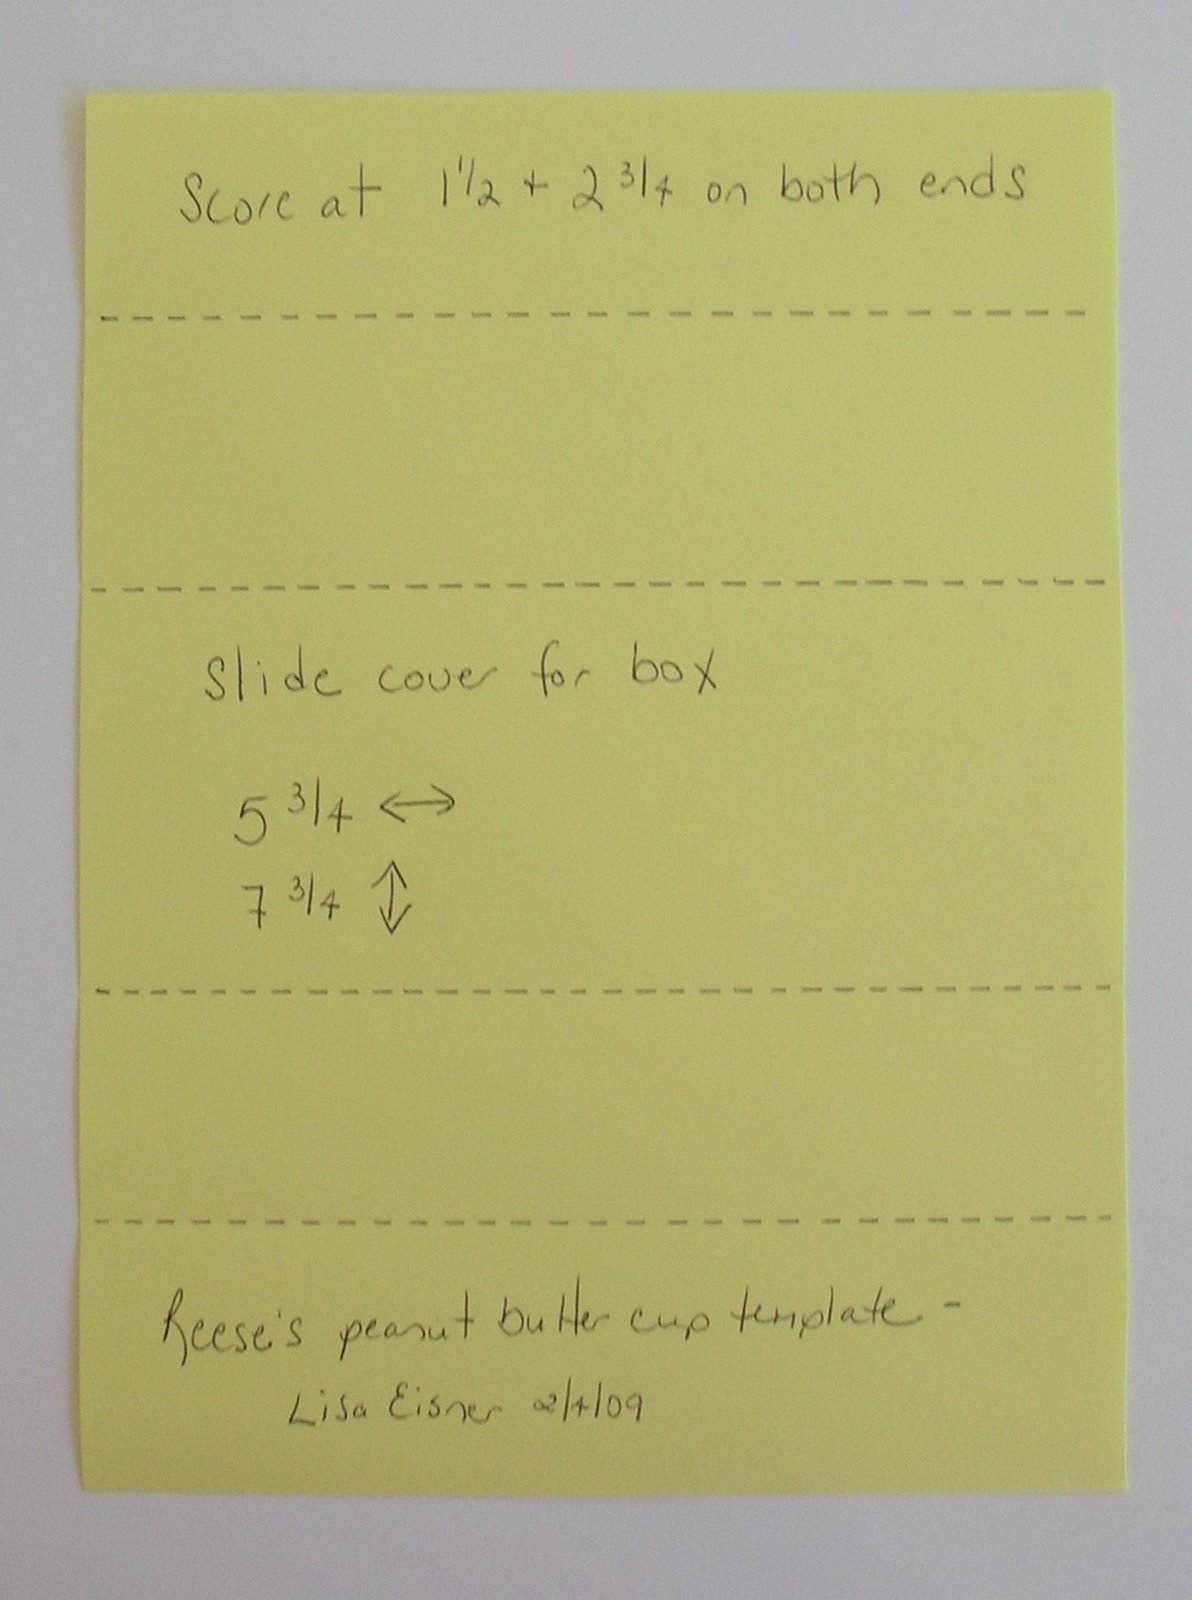 Score at 1 1/2 + 2 3/4 on both ends
Slide cover for box
5 3/4 ↔
7 3/4 ↕
Reese's peanut butter cup template -
Lisa Eisner 2/4/09